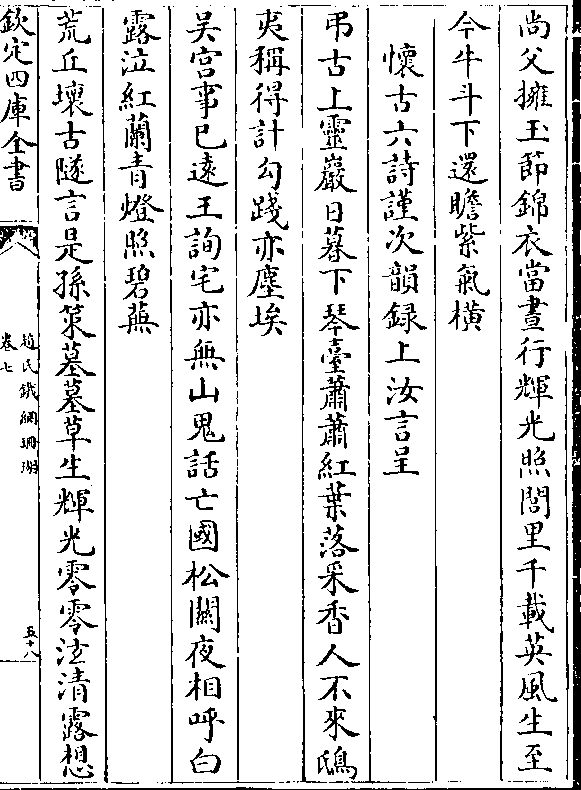 尚父擁玉節錦衣當晝行輝光照閭里千載英風生至
今牛斗下還瞻紫氣橫
懷古六詩謹次韻録上汝言呈
弔古上靈巖日暮下琴臺蕭蕭紅葉落采香人不來鴟
夷稱得計勾踐亦塵埃
吴宫事已遠王詢宅亦無山鬼話亡國松關夜相呼白
露泣紅蘭青燈照碧蕪
荒丘壞古隧言是孫策墓墓草生輝光零零泫清露想
欽定四庫全書
趙氏鐵網珊瑚
卷七
五十八